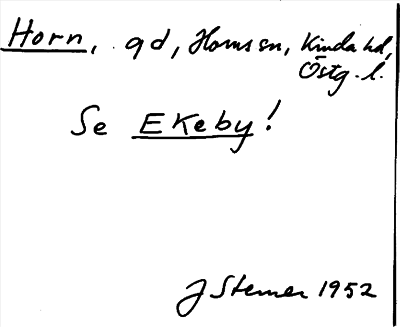 Horn, gd, Horns sn, Kinda hd,
Östg. l.
Se Ekeby!
J Sterner 1952